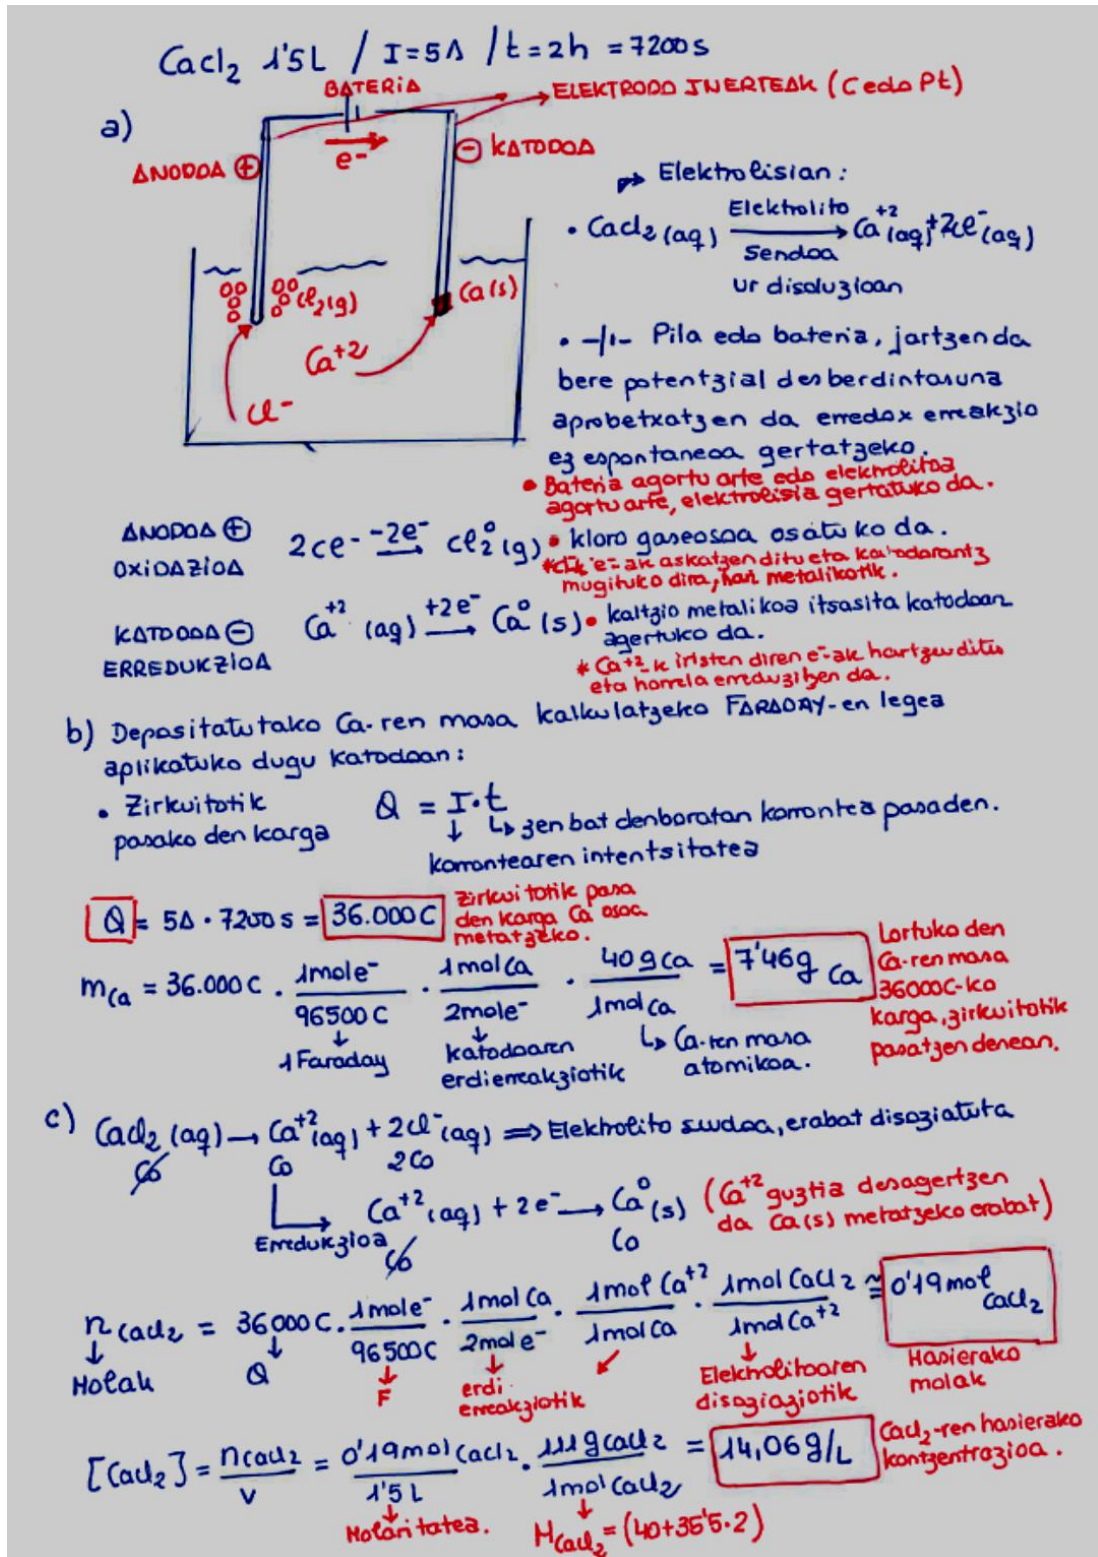 CaCl₂ 1'5L / I=5A / t=2h = 7200s
BATERIA
ELEKTRODO INERTEAK (C edo Pt)
a)
e⁻
ANODOA ⊕
⊖ KATODOA
Elektrolisian:
• CaCl₂ (aq) Elektrolito Sendoa → Ca⁺² (aq) + 2Cl⁻ (aq)
ur disoluzioan
Cl₂(g)
Ca(s)
Ca⁺²
Cl⁻
• Pila edo bateria, jartzen da
bere potentzial desberdintasuna
aprobetxatzen da erredox erreakzio
ez espontaneoa gertatzeko.
• Bateria agortu arte edo elektrolitoa
agortu arte, elektrolisia gertatuko da.
ANODOA ⊕
OXIDAZIOA
2Cl⁻ -2e⁻ → Cl₂⁰ (g) • kloro gaseosoa osatuko da.
e⁻ak askatzen ditu eta katodorantz
mugituko dira, hari metalikotik.
KATODOA ⊖
ERREDUKZIOA
Ca⁺² (aq) +2e⁻ → Ca⁰ (s) • kaltzio metalikoa itsasita katodoan
agertuko da.
* Ca⁺²-k iristen diren e⁻ak hartzen ditu
eta horrela erreduzitzen da.
b) Depositatutako Ca-ren masa kalkulatzeko FARADAY-en legea
aplikatuko dugu katodoan:
• Zirkuitotik
pasako den karga
Q = I·t
↳ zenbat denboratan korrontea pasa den.
korrontearen intentsitatea
Q = 5A · 7200 s = 36.000 C
Zirkuitotik pasa
den karga Ca osoa
metatzeko.
m Ca = 36.000 C · 1 mol e⁻ / 96500 C · 1 mol Ca / 2 mol e⁻ · 40 g Ca / 1 mol Ca = 7'46 g Ca
Lortuko den
Ca-ren masa
36000C-ko
karga, zirkuitotik
pasatzen denean.
1 Faraday
katodoaren
erdierreakziotik
↳ Ca-ren masa
atomikoa.
c) CaCl₂ (aq) → Ca⁺² (aq) + 2Cl⁻ (aq) ⇒ Elektrolito sendoa, erabat disoziatuta
Co Co 2Co
Erredukzioa
Ca⁺² (aq) + 2e⁻ → Ca⁰ (s) (Ca⁺² guztia desagertzen
da Ca(s) metatzeko erabat)
Co Co
n CaCl₂ = 36000 C · 1 mol e⁻ / 96500 C · 1 mol Ca / 2 mol e⁻ · 1 mol Ca⁺² / 1 mol Ca · 1 mol CaCl₂ / 1 mol Ca⁺² ≅ 0'19 mol CaCl₂
Molak
Q
F
erdi
erreakziotik
Elektrolitoaren
disoziaziotik
Hasierako
molak
[CaCl₂] = n CaCl₂ / V = 0'19 mol CaCl₂ / 1'5 L · 111 g CaCl₂ / 1 mol CaCl₂ = 14,06 g/L
CaCl₂-ren hasierako
kontzentrazioa.
Molaritatea.
M CaCl₂ = (40+35'5·2)